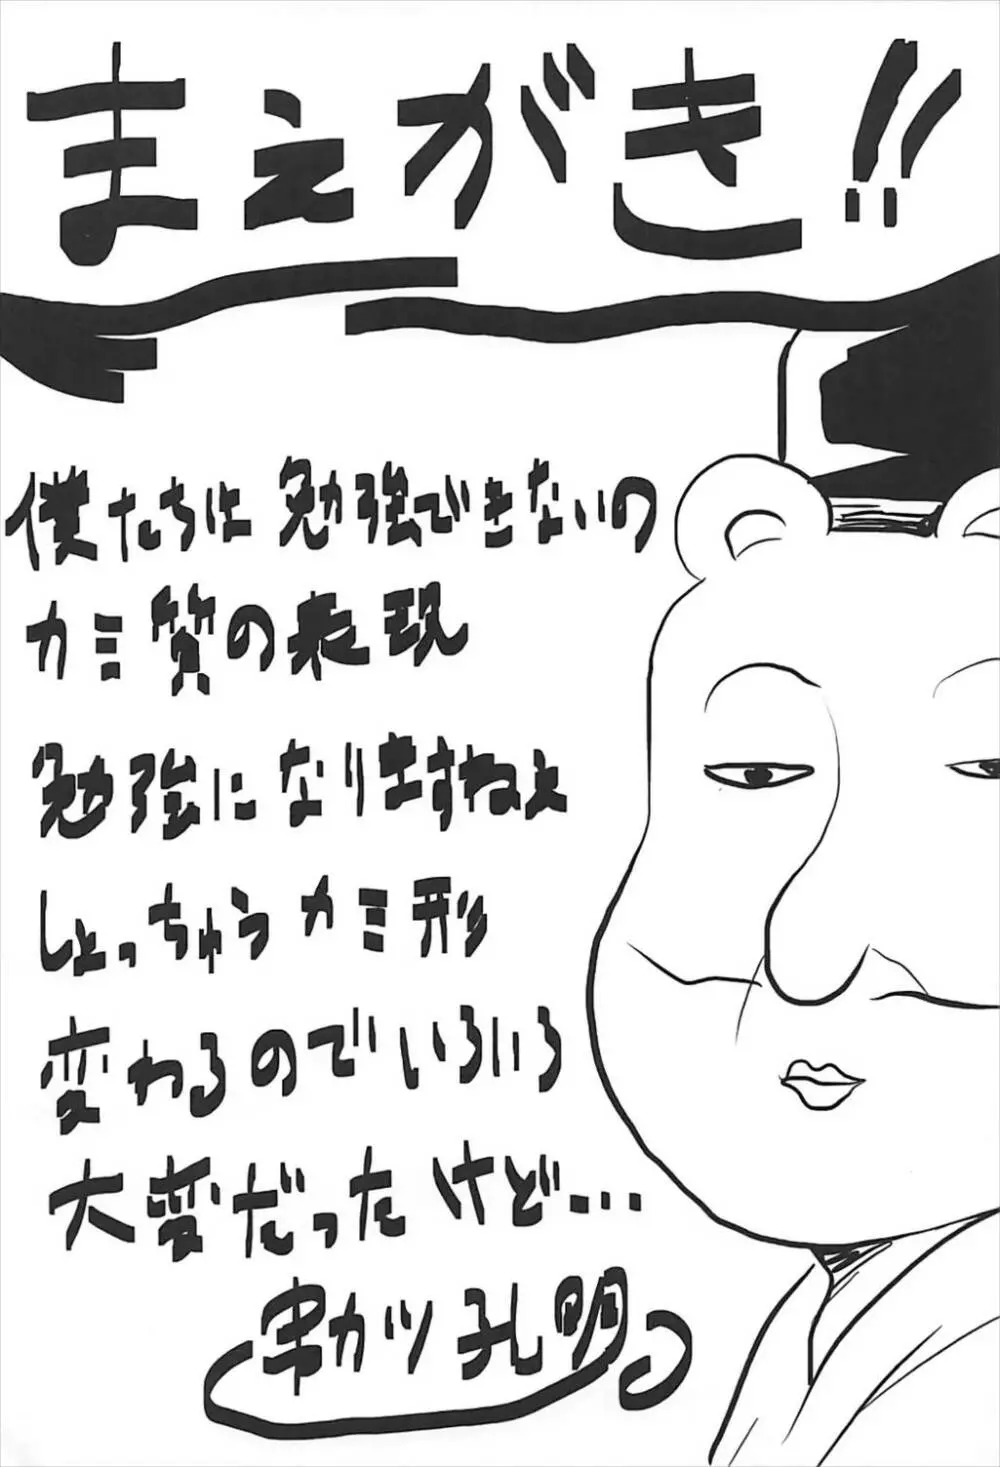 まえがき!!
僕たちは勉強できないの
カミ質の表現
勉強になりますねぇ
しょっちゅうカミ形
変わるのでいろいろ
大変だったけど…
串カツ孔明